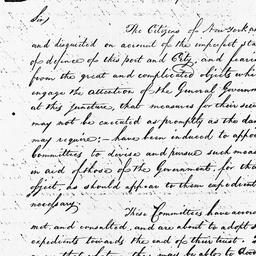 Sir,
The Citizens of New York
and disquieted on account of the imperfect sta
of defence of this port and City, and fearin
from the great and complicated objects whi
engage the attention of the General Governm
at this juncture, that measures for their secu
may not be executed as promptly as the dan
may require; — have been induced to appoi
Committees to devise and pursue such meas
in aid of those of the Government, for tha
object, as should appear to them expedient
necessary.
This Committees have accor
met, and consulted, and are about to adopt s
expedients towards the end of their trust.
may be able to